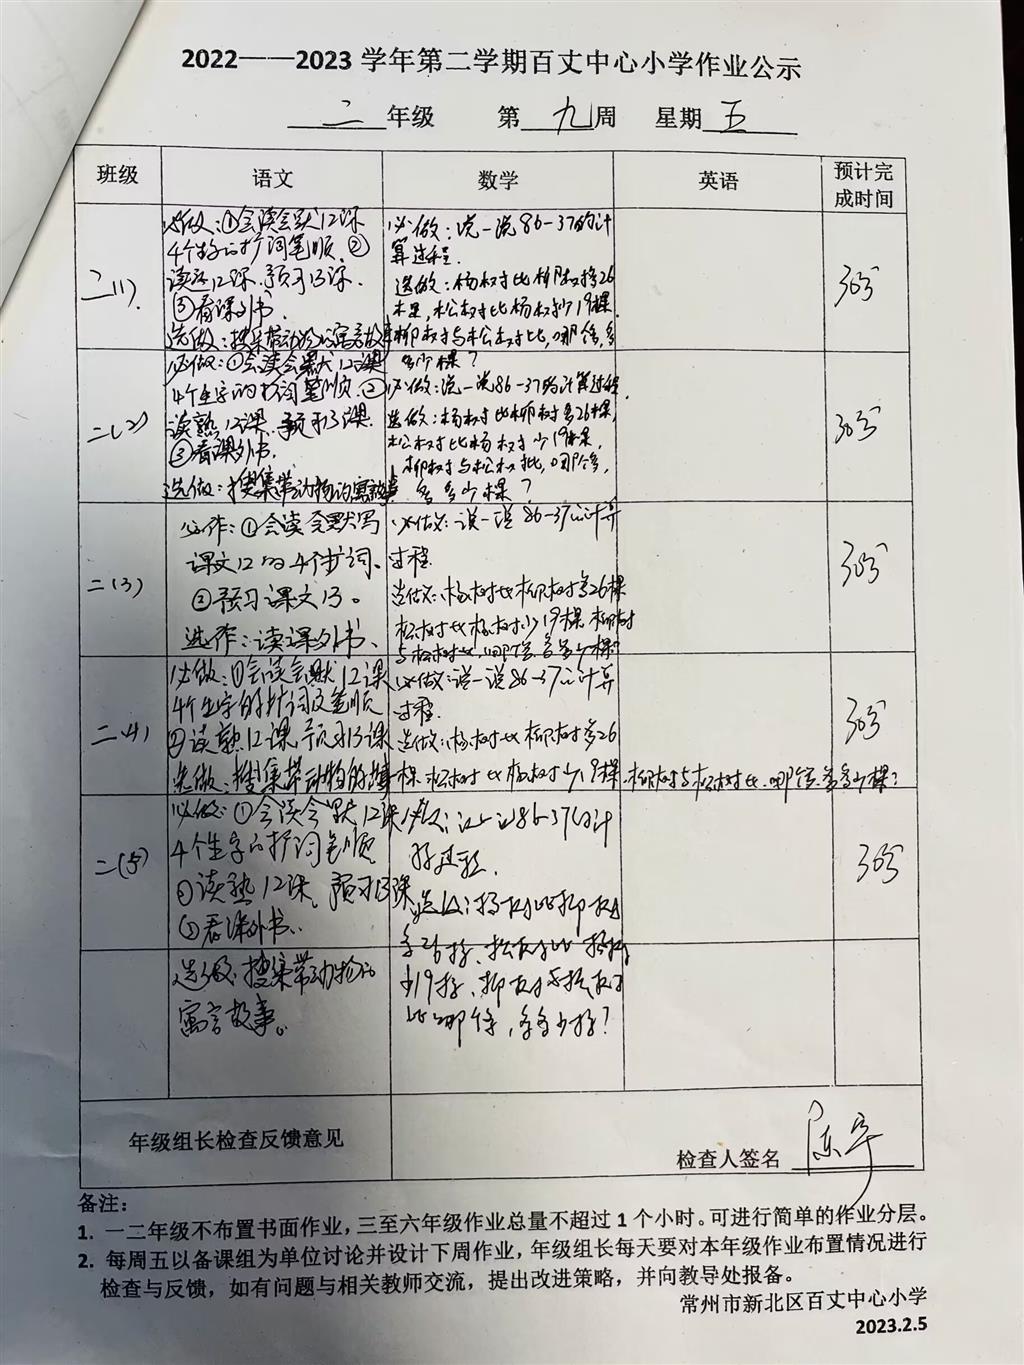 2022——2023 学年第二学期百丈中心小学作业公示
二 年级 第 九 周 星期 五
班级 语文 数学 英语 预计完成时间
二(1)
必做:①会读会默12课
4个生字的扩词笔顺.②
读熟12课.预习13课.
③看课外书.
选做:搜集带动物的寓言故事
必做:说一说86-37的计
算过程.
选做:杨树比柳树多26
棵,松树比杨树少19棵.
柳树与松树比,哪个多,多
多少棵?
30分
二(2)
必做:①会读会默12课
4个生字的扩词笔顺.②
读熟12课.预习13课.
③看课外书.
选做:搜集带动物的寓言故事
必做:说一说86-37的计算过程.
选做:杨树比柳树多26棵,
松树比杨树少19棵,
柳树与松树比,哪个多,
多多少棵?
30分
二(3)
必作:①会读会默写
课文12的4个扩词.
②预习课文13。
选作:读课外书.
必做:说一说86-37的计算
过程.
选做:杨树比柳树多26棵
松树比杨树少19棵.柳树
与松树比,哪个多,多多少棵?
30分
二(4)
必做:①会读会默12课
4个生字的扩词及笔顺
②读熟12课,预习13课
选做:搜集带动物的故事
必做:说一说86-37的计算
过程.
选做:杨树比柳树多26
棵.松树比杨树少19棵.柳树与松树比.哪个多.多多少棵?
30分
二(5)
必做:①会读会默12课
4个生字的扩词笔顺
②读熟12课,预习13课
③看课外书.
选做:搜集带动物的
寓言故事。
必做:说一说86-37的计
算过程.
选做:杨树比柳树
多26棵、松树比杨树
少19棵、柳树与松树
比哪个多,多多少棵?
30分
年级组长检查反馈意见
检查人签名 陈宇
备注:
1. 一二年级不布置书面作业,三至六年级作业总量不超过1个小时。可进行简单的作业分层。
2. 每周五以备课组为单位讨论并设计下周作业,年级组长每天要对本年级作业布置情况进行
检查与反馈,如有问题与相关教师交流,提出改进策略,并向教导处报备。
常州市新北区百丈中心小学
2023.2.5